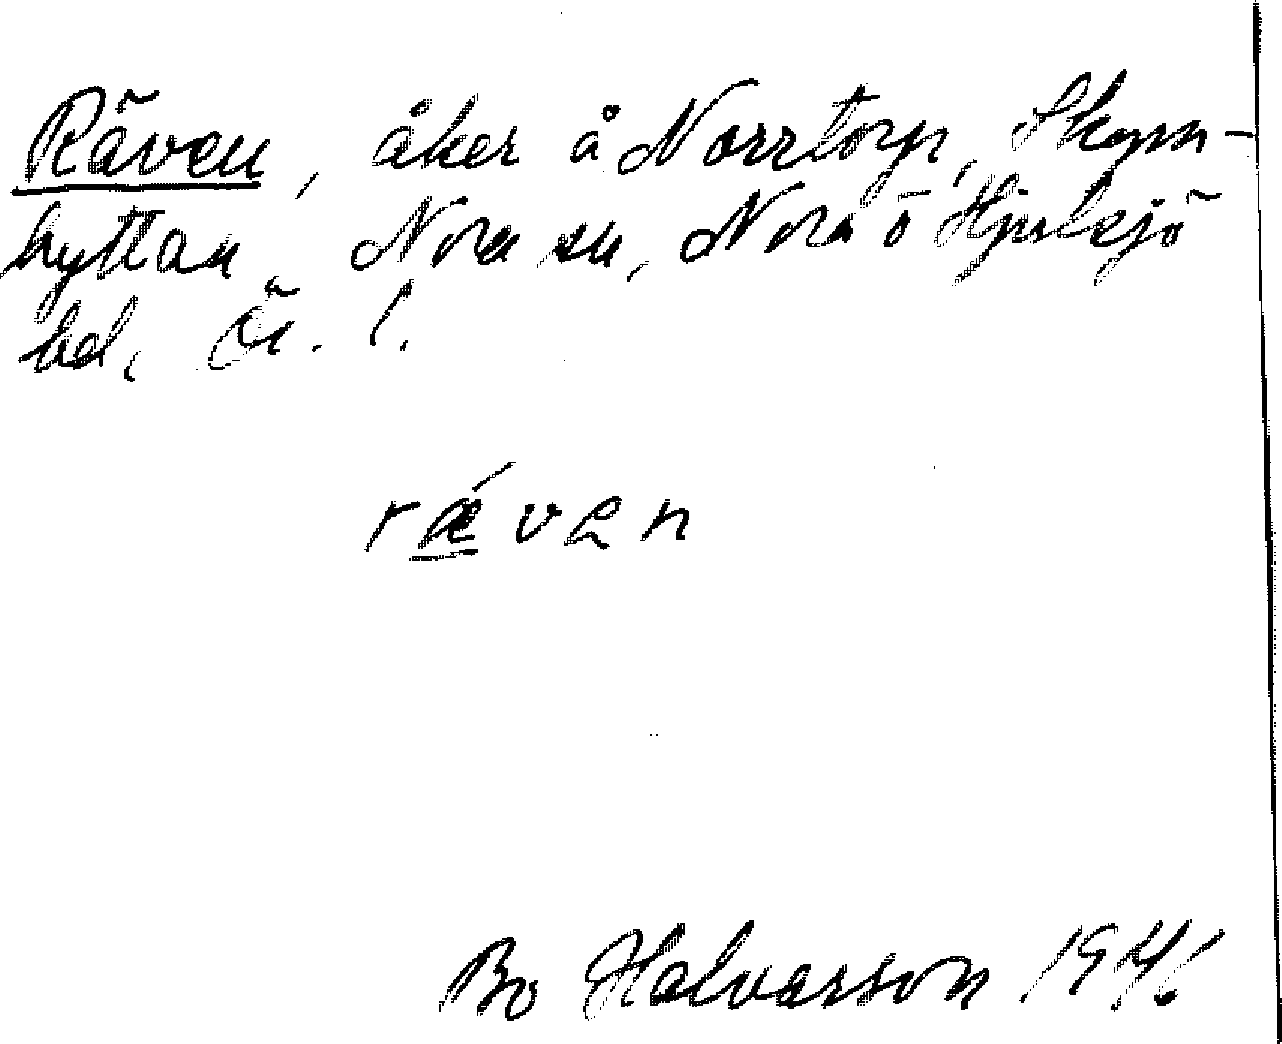 Räven, åker å Norrtorp, Skrpn-
hyttan, Nora sn, Nora o Hjulsjö
bd, Ör. l.
rǽven
Bo Halvarson 1941